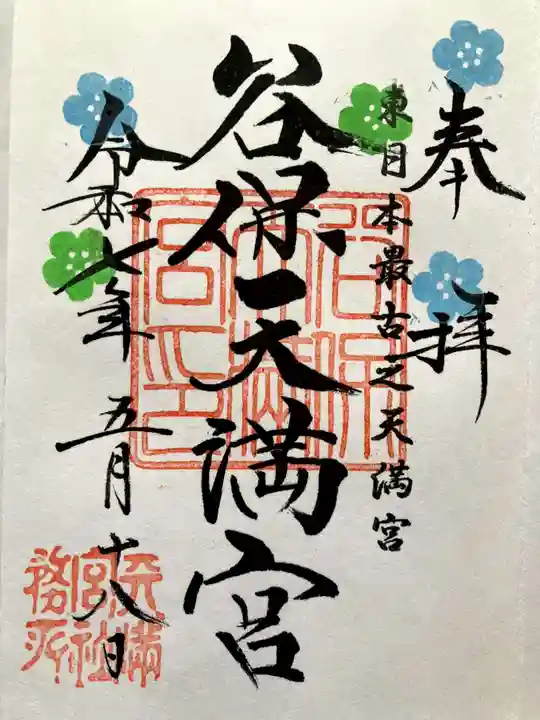 奉拝
東日本最古之天満宮
谷保天満宮
令和七年 五月 十八日
谷保天満宮印
天満宮社務所